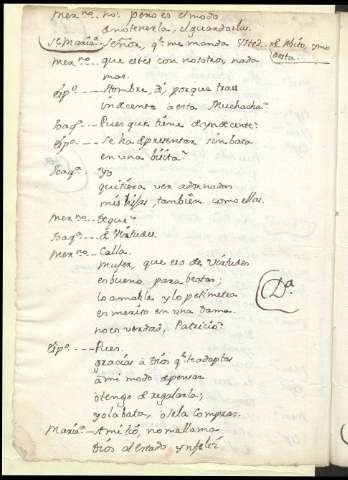 Mer.no no. pero es el modo
de no tenerla, el guardarlas.
Sa Maria. Señor, q.e me manda Vsted.
Mer.no que estes con nosotros, nada
mas.
esp.a Hombre, di, porque traes
indecente a esta Muchacha?
Joaq.n Pues que tiene de yndecente?
esp.a Se ha de presentar sin bata
en una bisita?
Joaq.n Yo
quisiera ver adornadas
mis hijas tambien como ellas.
Mer.no de que?
Joaq.n de Virtudes.
Mer.no Calla.
Muger, que eso de virtudes
es bueno para beatas;
lo amable y lo petimetra
es merito en una Dama.
no es verdad, Patricio?
esp.a Pues.
gracias à Dios q.e te adaptas
a mi modo de pensar
o tengo de regalarla,
yo la bata, o se la compras.
Maria. A mi tio, no me llama
Dios al estado ynfeliz
D.a